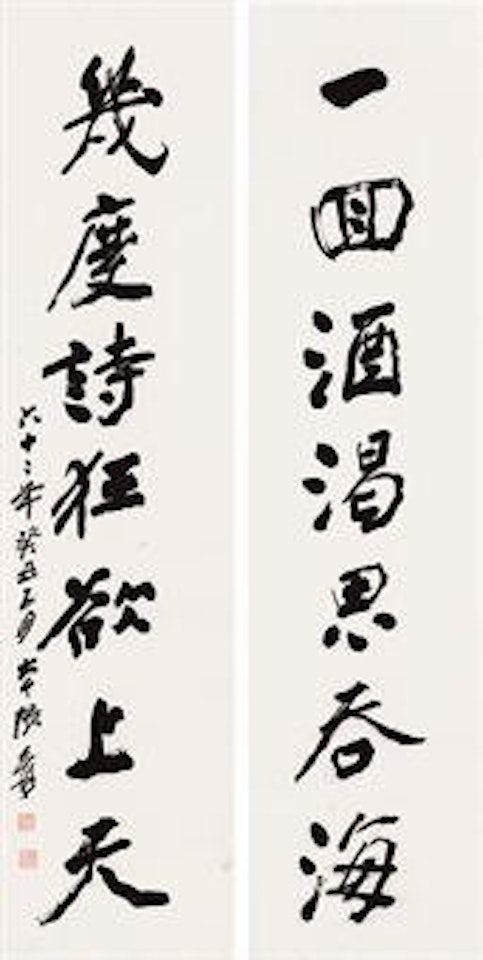 一回酒渴思吞海
幾度詩狂欲上天
六十二年癸丑正月大千張爰